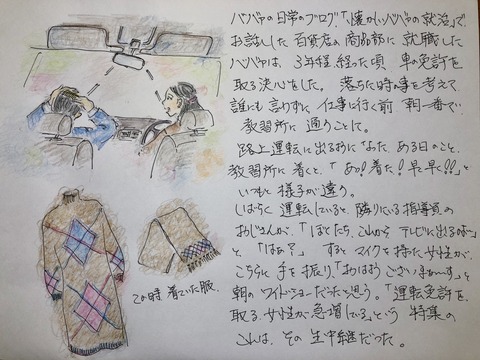 ババアの日常のブログ「懐かしいババアの就活」で
お話しした百貨店の商品部に就職した
ババアは、3年程経った頃 車の免許を
取る決心をした。落ちた時の事を考えて
誰にも言わずに仕事に行く前 朝一番で
教習所に通うことに。
路上運転に出るようになったある日のこと、
教習所に着くと、「あっ!着た!早く早く!!」と
いつもと様子が違う。
しばらく運転していると、隣りにいる指導員の
おじさんが、「ぼくたち、これからテレビに出るのよ〜」
と「はぁ?」 するとマイクを持った女性が、
こちらに手を振り、「おはようございまぁーす」と
朝のワイドショーだったと思う。「運転免許を、
取る女性が急増している」という特集の
これは、その生中継だった。
この時 着ていた服